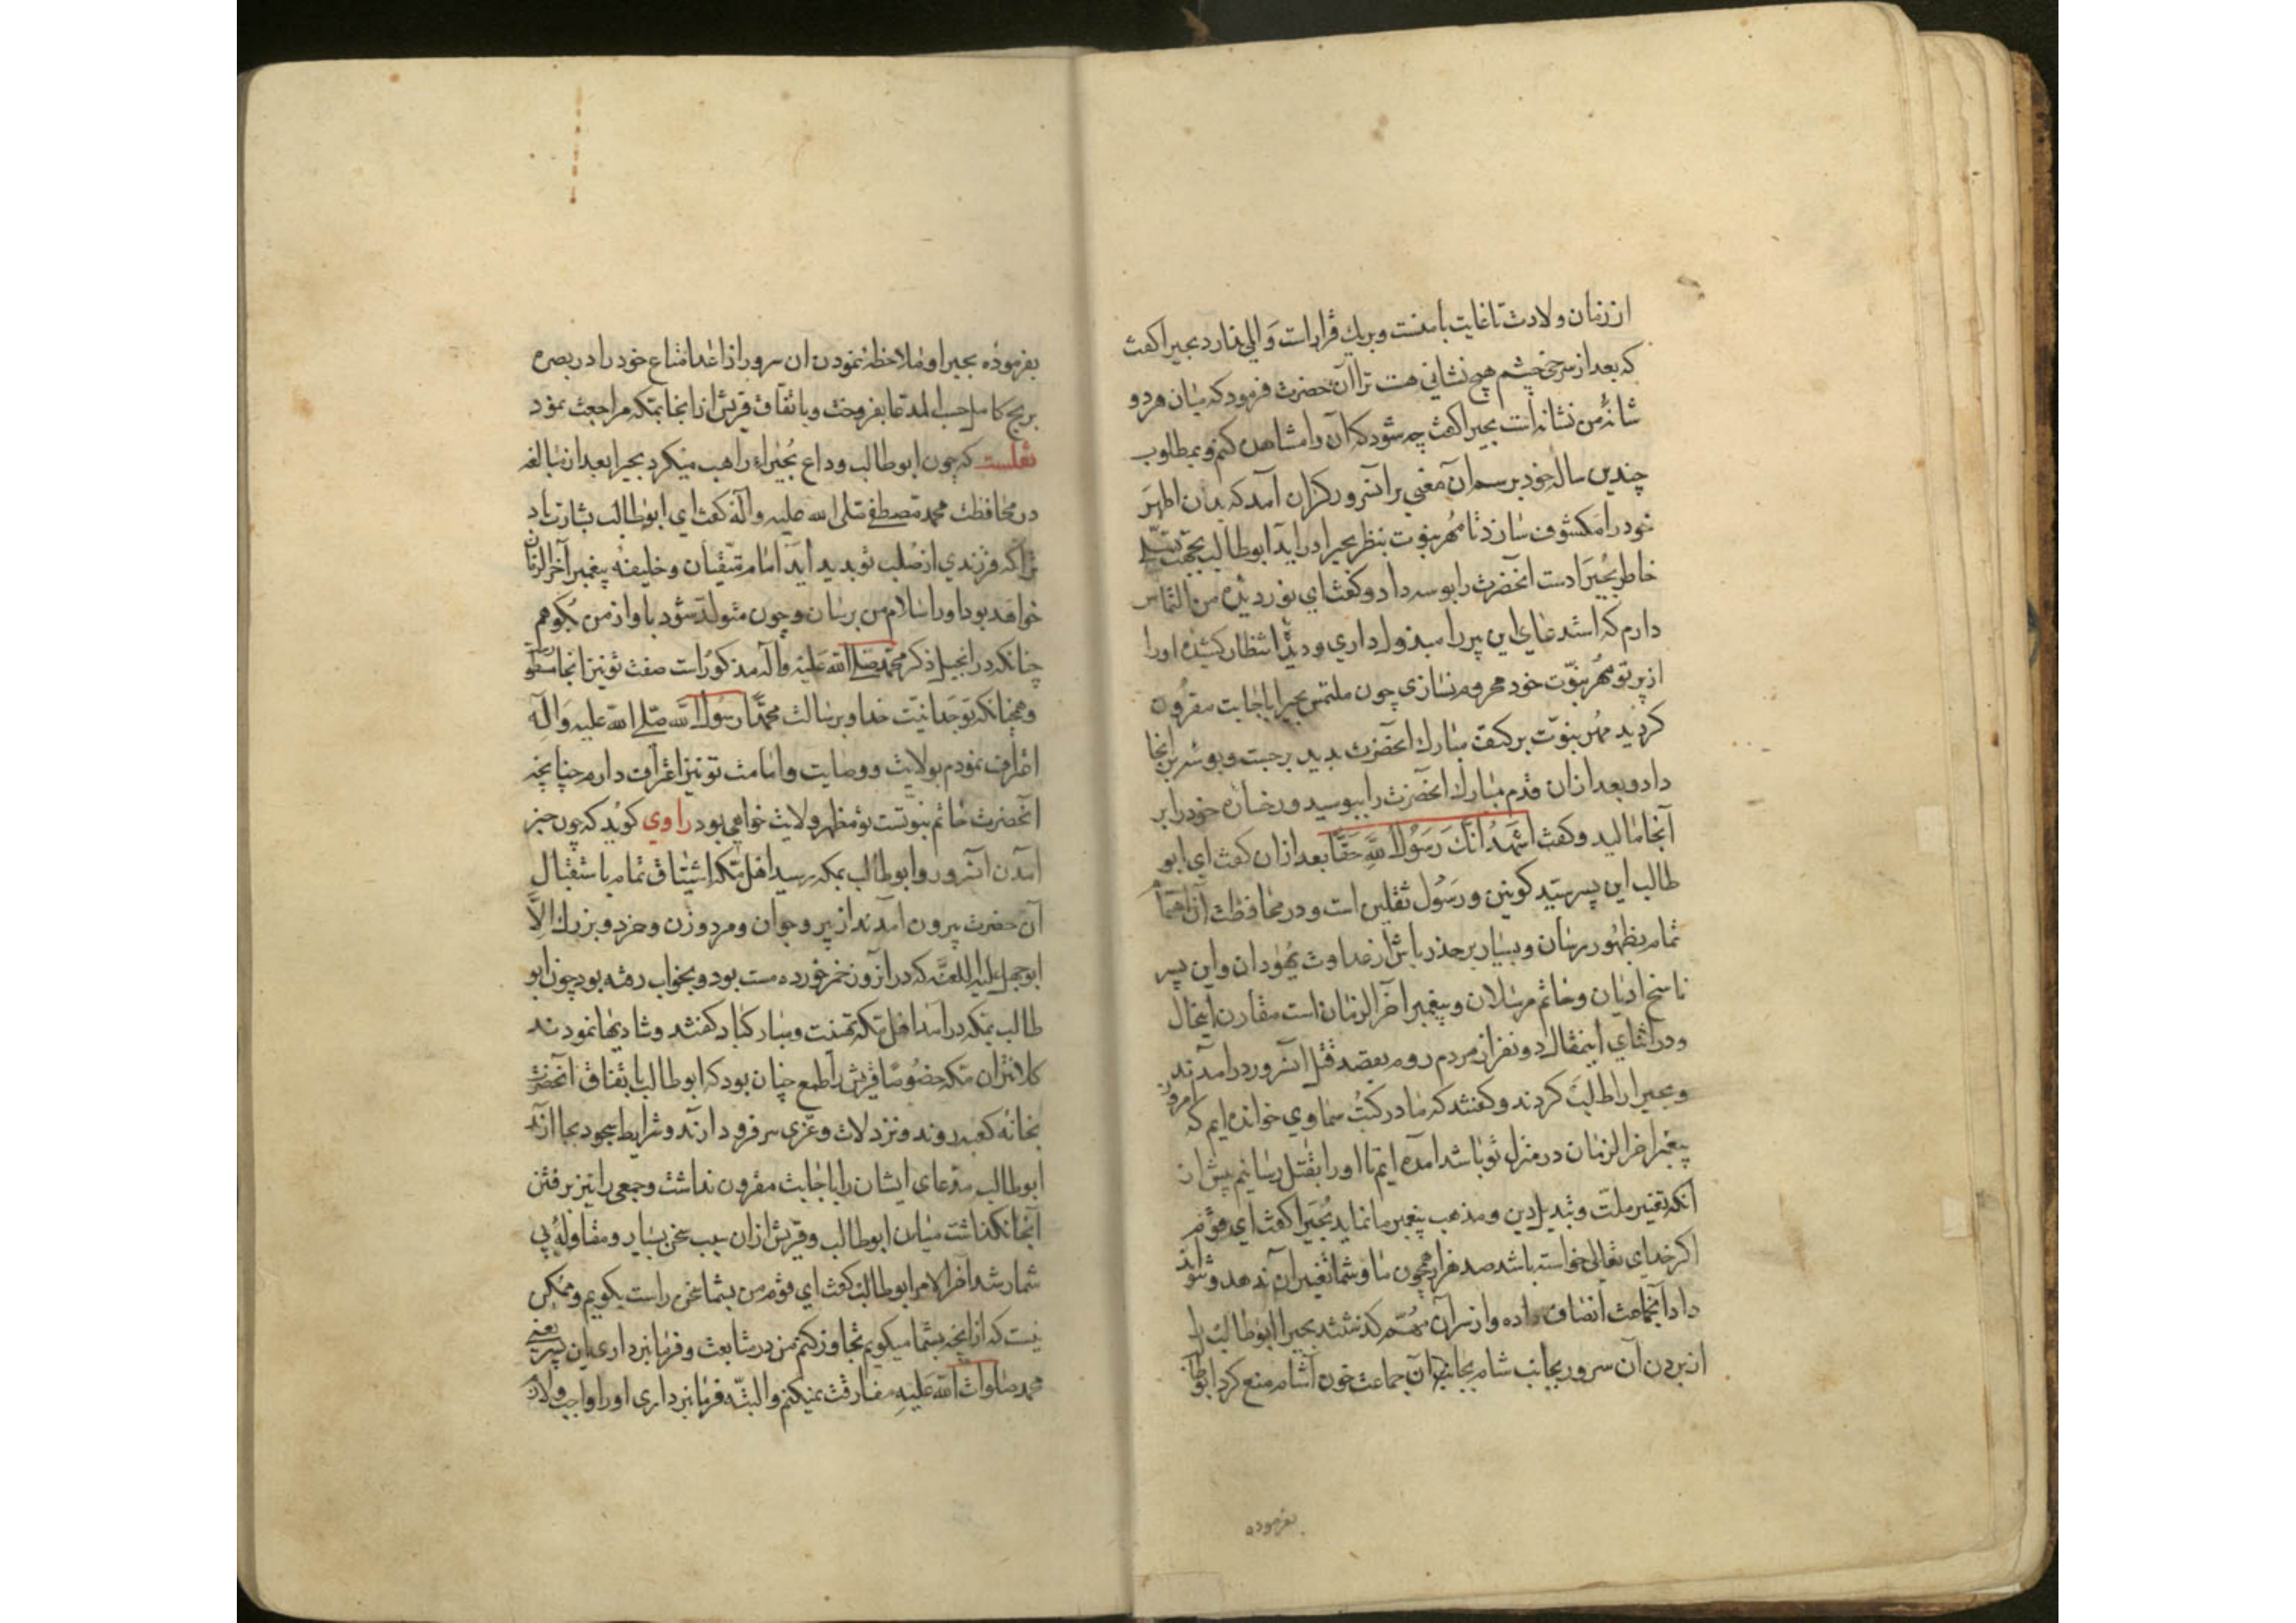 از زمان ولادت تا غایت با منست و بریك قرار است و المی ندارد بحیرا کفت
که بعد از سرخی چشم هیچ نشانی هست ترا آن حضرت فرمود که میان هر دو
شانهٔ من نشانه است بحیرا کفت چه شود که آن را مشاهده کنم و بمطلوب
چندین ساله خود برسم آن معنی بر آنسرور کران آمد که بدن اطهر
خود را مکشوف سازد تا مهر نبوت بنظر بحیرا در اید ابوطالب بجهت تسلی
خاطر بحیرا دست انحضرت را بوسه داد و کفت ای نور دیده من التماس
دارم که استدعای این پیر را مبذول داری و دیدهٔ انتظار کشیده او را
از پرتو مهر نبوّت خود محروم نسازی چون ملتمس بحیرا باجابت مقرون
کردید مهر نبوّت بر کتف مبارك انحضرت بدید برجست و بوسه بر انجا
داد و بعد از ان قدم مبارك انحضرت را ببوسید و رخساره خود را بر
آنجا مالید و کفت اَشهَدُ انَّكَ رَسُولُ اللَّهِ حَقًّا بعد از ان کفت ای ابو
طالب این پسر سیّد کونین و رسول ثقلین است و در محافظت آن اهتمام
تمام بظهور رسان و بسیار بر حذر باش از عداوت یهودان و این پسر
ناسخ ادیان و خاتم مرسلان و پیغمبر آخر الزمان است مقارن اینحال
و در اثنای اینمقال دو نفر از مردم روم بقصد قتل آنسرور در امدند
و بحیرا را طلب کردند و کفتند که ما در کتب سماوی خوانده ایم که امروز
پیغمبر اخر الزمان در منزل تو باشد امده ایم تا او را بقتل رسانیم پیش از
انکه تغییر ملت و تبدیل دین و مذهب پیغمبر ما نماید بحیرا کفت ای قوم
اکر خدای تعالی خواسته باشد صد هزار همچون ما و شما تغییر آن ندهد و نتواند
داد آنجماعت انصاف داده و از سر آن مهم کذشتند بحیرا ابوطالب را
از بردن آن سرور بجانب شام بجانب آن جماعت خون آشام منع کرد ابوطالب
بفرموده
بفرموده بحیرا و ملاحظه نمودن ان سرور از اعدا متاع خود را در بصره
بربح کامل حسب المدعا بفروخت و باتفاق قریش از انجا بمکه مراجعت نمود
نقلست که چون ابوطالب وداع بحیراء راهب میکرد بحیرا بعد از مبالغه
در محافظت محمد مصطفی صلی الله علیه و آله کفت ای ابوطالب بشارت باد
ترا که فرزندی از صلب تو پدید آید امام متّقیان و خلیفه پیغمبر آخر الزمان
خواهد بود او را سلام من برسان و چون متولد شود باو از من بکو هم
چنانکه در انجیل ذکر محمّد صلی الله علیه و آله مذکور است صفت تو نیز انجا مسطور است
و همچنانکه بوحدانیّت خدا و برسالت محمّد رسول الله صلی الله علیه و آله
اعتراف نمودم بولایت و وصایت و امامت تو نیز اعتراف دارم چنانچه
آنحضرت خاتم نبوتست تو مظهر ولایت خواهی بود راوی کوید که چون خبر
آمدن آنسرور و ابوطالب بمکه رسید اهل مکه باشتیاق تمام باستقبال
آن حضرت بیرون آمدند از پیر و جوان و مرد و زن و خرد و بزرك الّا
ابوجهل علیه اللعنه که در انروز خمر خورده مست بود و بخواب رفته بود چون ابو
طالب بمکه در امد اهل مکه تهنیت و مبارکباد کفتند و شادیها نمودند
کلانتران مکه خصوصا قریش را طمع چنان بود که ابوطالب باتفاق آنحضرت
بخانه کعبه روند و نزد لات و عزّی سر فرود ارند و شرایط سجود بجا ارند
ابوطالب مدعای ایشان را باجابت مقرون نداشت و جمعی را نیز برفتن
آنجا نکذاشت میان ابوطالب و قریش از ان سبب سخن بسیار و مقاوله بی
شمار شد آخر الامر ابوطالب کفت ای قوم من بشما سخن راست بکویم و ممکن
نیست که از انچه بشما میکویم تجاوز کنم من در متابعت و فرمانبرداری این پسر یعنی
محمد صلوات الله علیه مفارقت نمیکنم و البتّه فرمانبرداری او را واجب و لازم